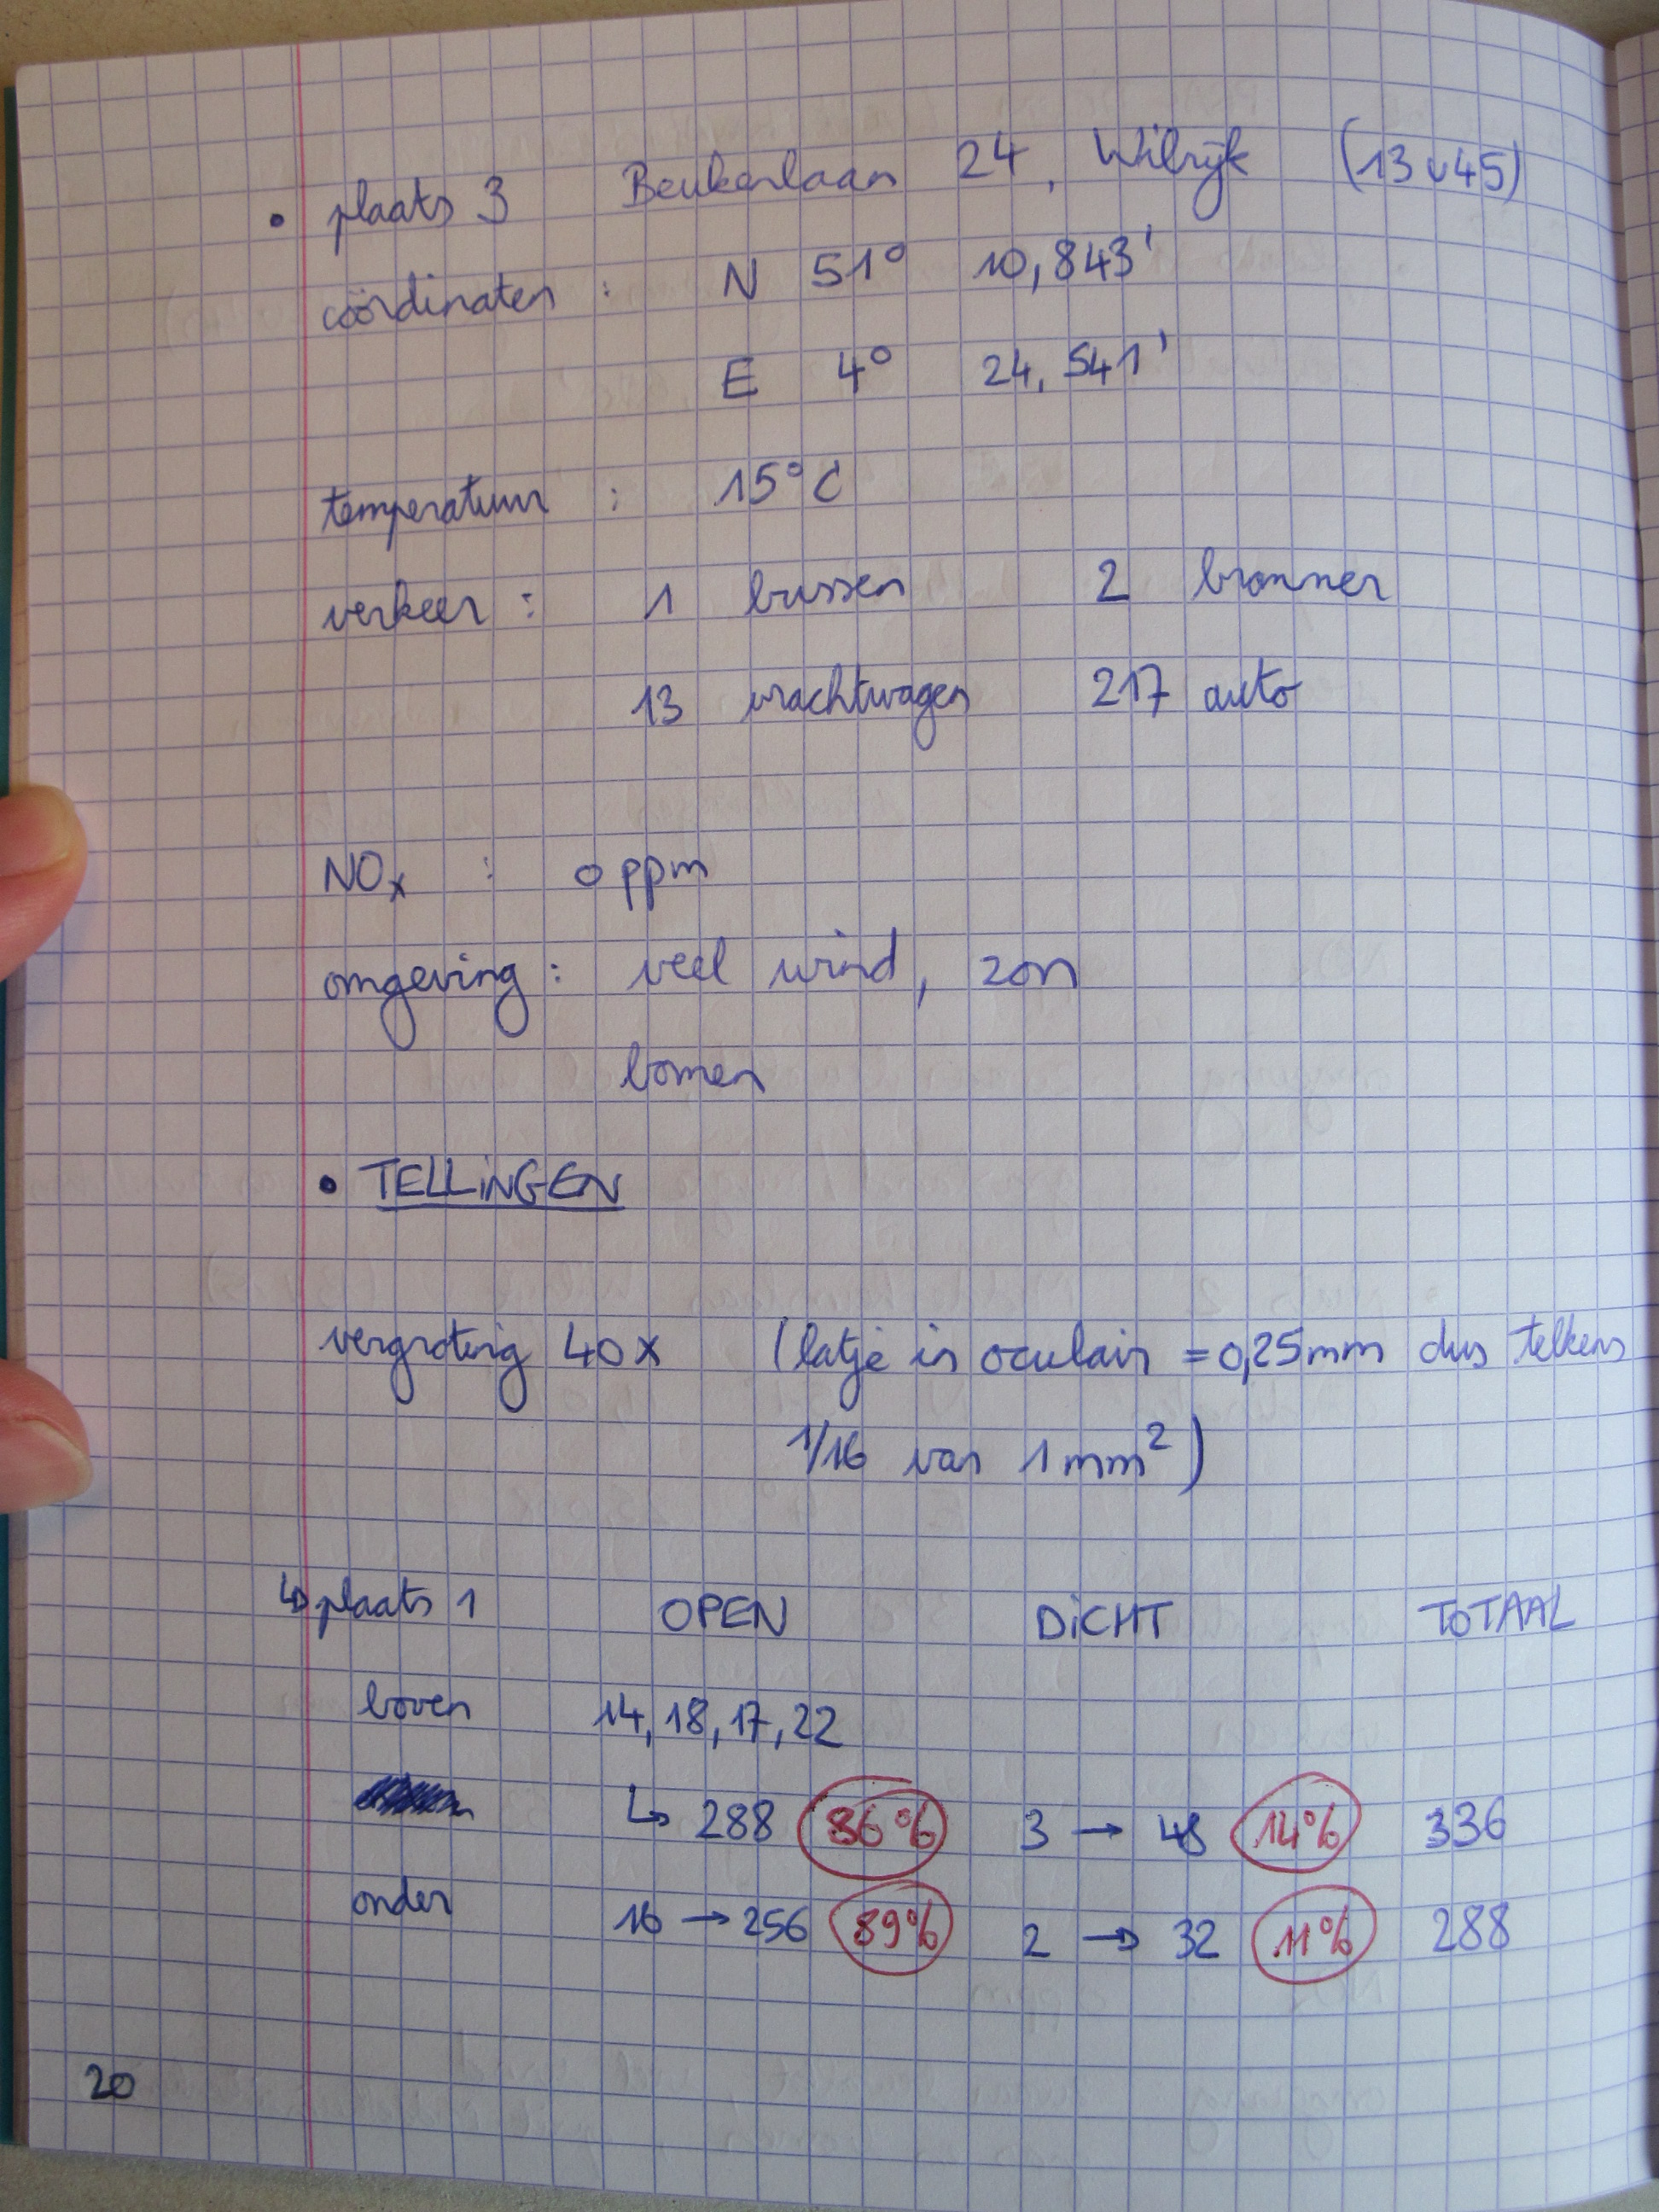 • plaats 3 Beukenlaan 24, Wilrijk (13u45)
coördinaten : N 51° 10,843'
E 4° 24,541'
temperatuur : 15°C
verkeer : 1 bussen 2 brommer
13 vrachtwagen 217 auto
NOx : 0 ppm
omgeving : veel wind, zon
bomen
• TELLINGEN
vergroting 40x (latje in oculair = 0,25mm dus telkens
1/16 van 1mm²)
↳ plaats 1 OPEN DICHT TOTAAL
boven 14, 18, 17, 22
↳ 288 86% 3 → 48 14% 336
onder 16 → 256 89% 2 → 32 11% 288
20